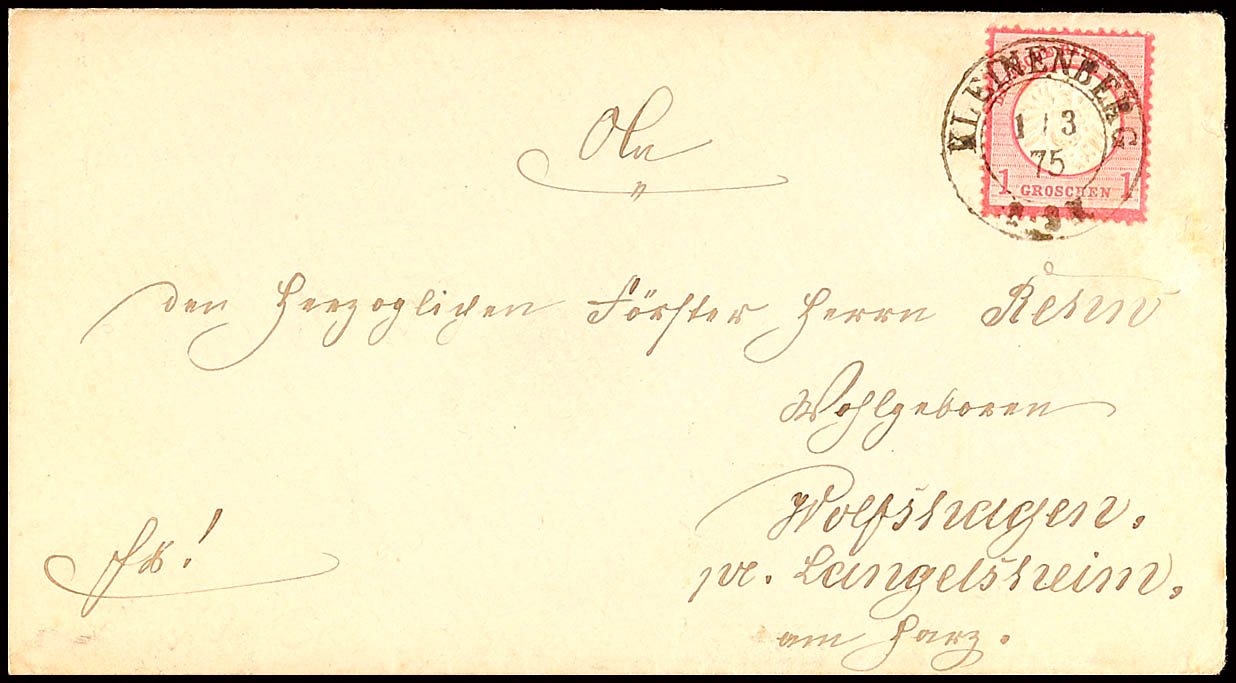 KLEINENBERG
1 / 3
75
1 GROSCHEN 1
An
den Herzoglichen Förster Herrn Rehm
Wohlgeboren
Wolfshagen.
pr. Langelsheim.
am Harz.